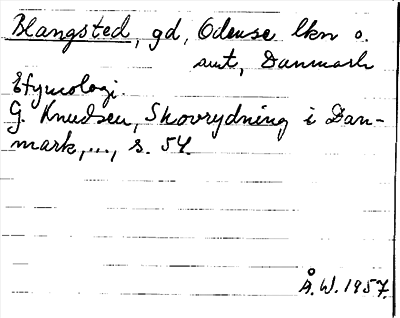 Blangsted, gd, Odense lkn o.
amt, Danmark
Etymologi.
G. Knudsen, Skovrydning i Dan-
mark,..., s. 54.
Å.W. 1957.